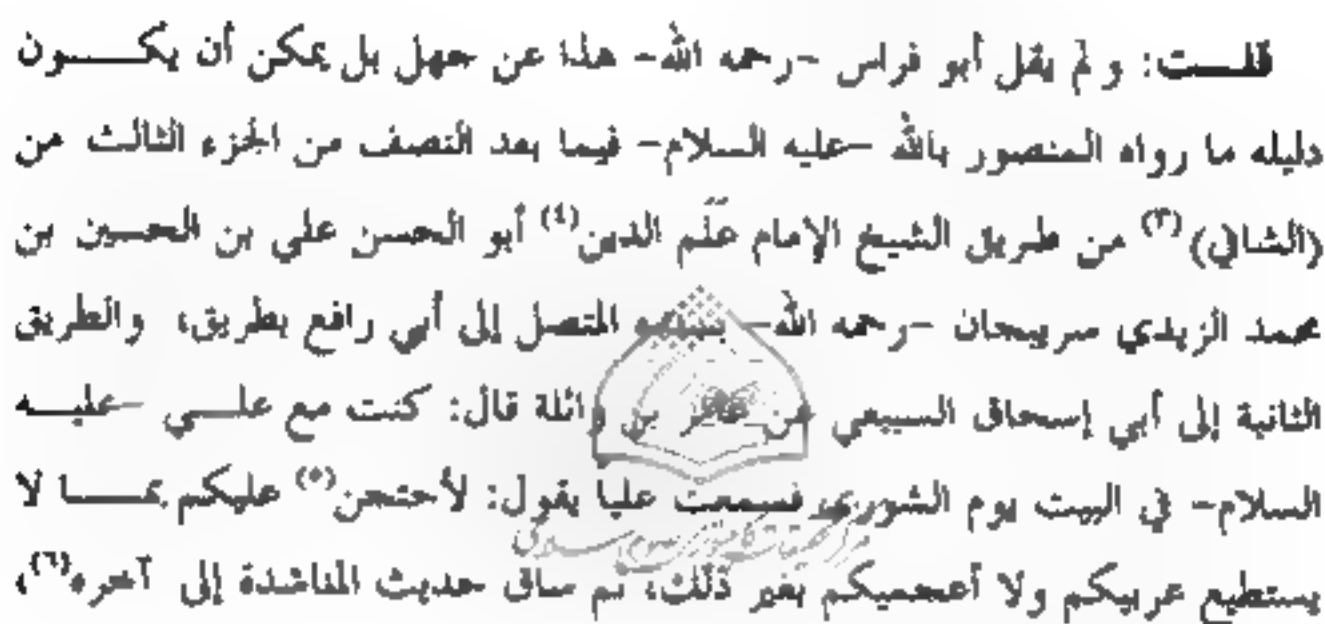 قلت: و لم يقل أبو فراس -رحمه الله- هذا عن جهل بل يمكن أن يكون
دليله ما رواه المنصور بالله -عليه السلام- فيما بعد النصف من الجزء الثالث من
(الشافي)(٣) من طريق الشيخ الإمام عَلَم الدين(٤) أبو الحسن علي بن الحسين بن
محمد الزيدي سريجان -رحمه الله- بسنده المتصل إلى أبي رافع بطريق، والطريق
الثانية إلى أبي إسحاق السبيعي عن عامر بن واثلة قال: كنت مع علي -عليه
السلام- في البيت يوم الشورى فسمعت علياً يقول: لأحتجن(٥) عليكم بما لا
يستطيع عربيكم ولا أعجميكم بغير ذلك، ثم ساق حديث المناشدة إلى آخره(٦)،